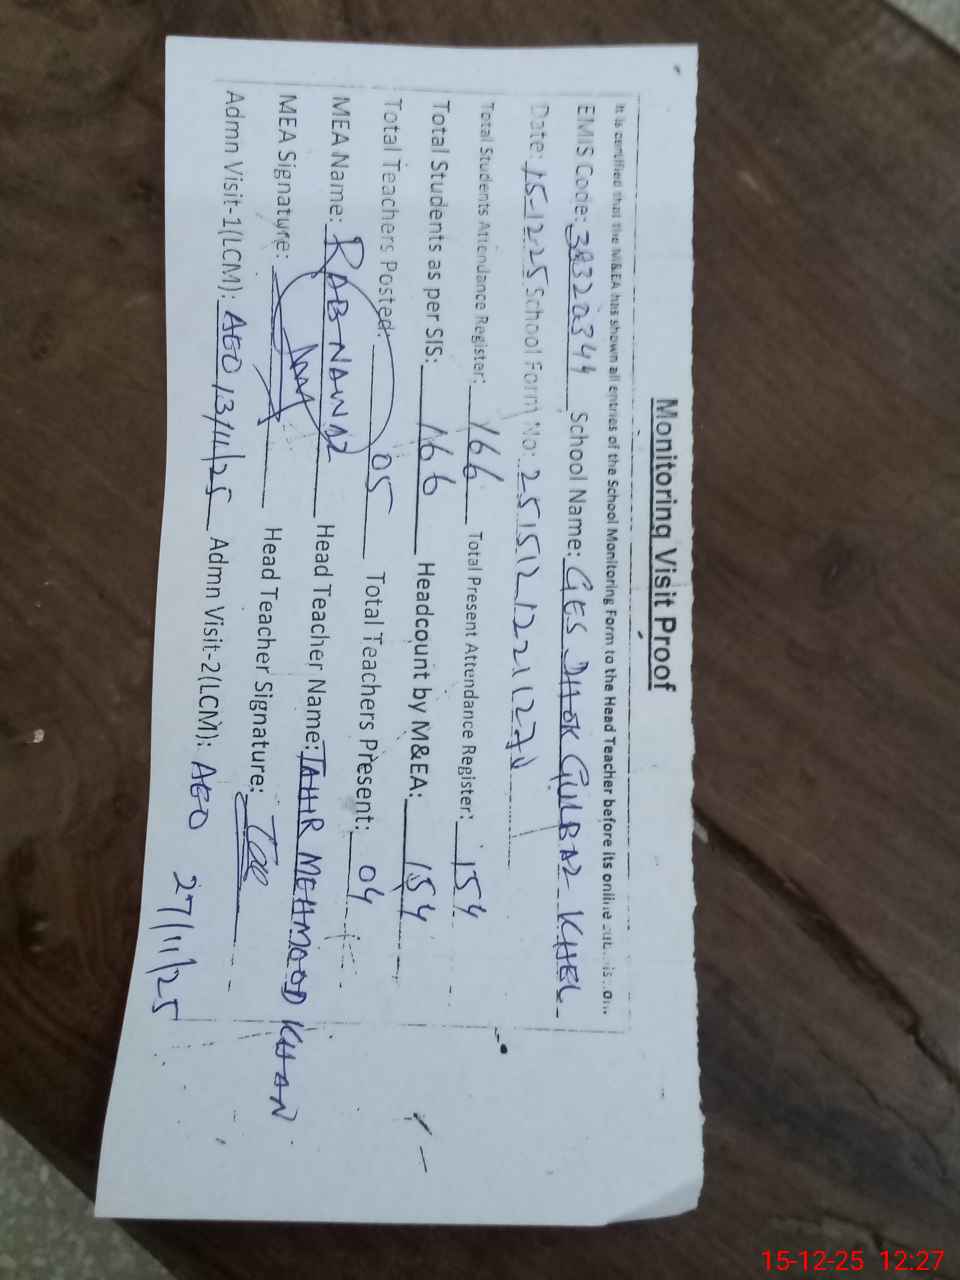 Monitoring Visit Proof
It is certified that the M&EA has shown all entries of the School Monitoring Form to the Head Teacher before its online submission.
EMIS Code: 38320344 School Name: GES DHOK GULBAZ KHEL
Date: 15-12-25 School Form No:
Total Students Attendance Register: 166 Total Present Attendance Register: 154
Total Students as per SIS: 166 Headcount by M&EA: 154
Total Teachers Posted: 05 Total Teachers Present: 04
MEA Name: RAB NAWAZ Head Teacher Name: TAHIR MEHMOOD KHAN
MEA Signature: Head Teacher Signature:
Admn Visit-1(LCM): AEO 13/11/25 Admn Visit-2(LCM): AEO 27/11/25
15-12-25 12:27